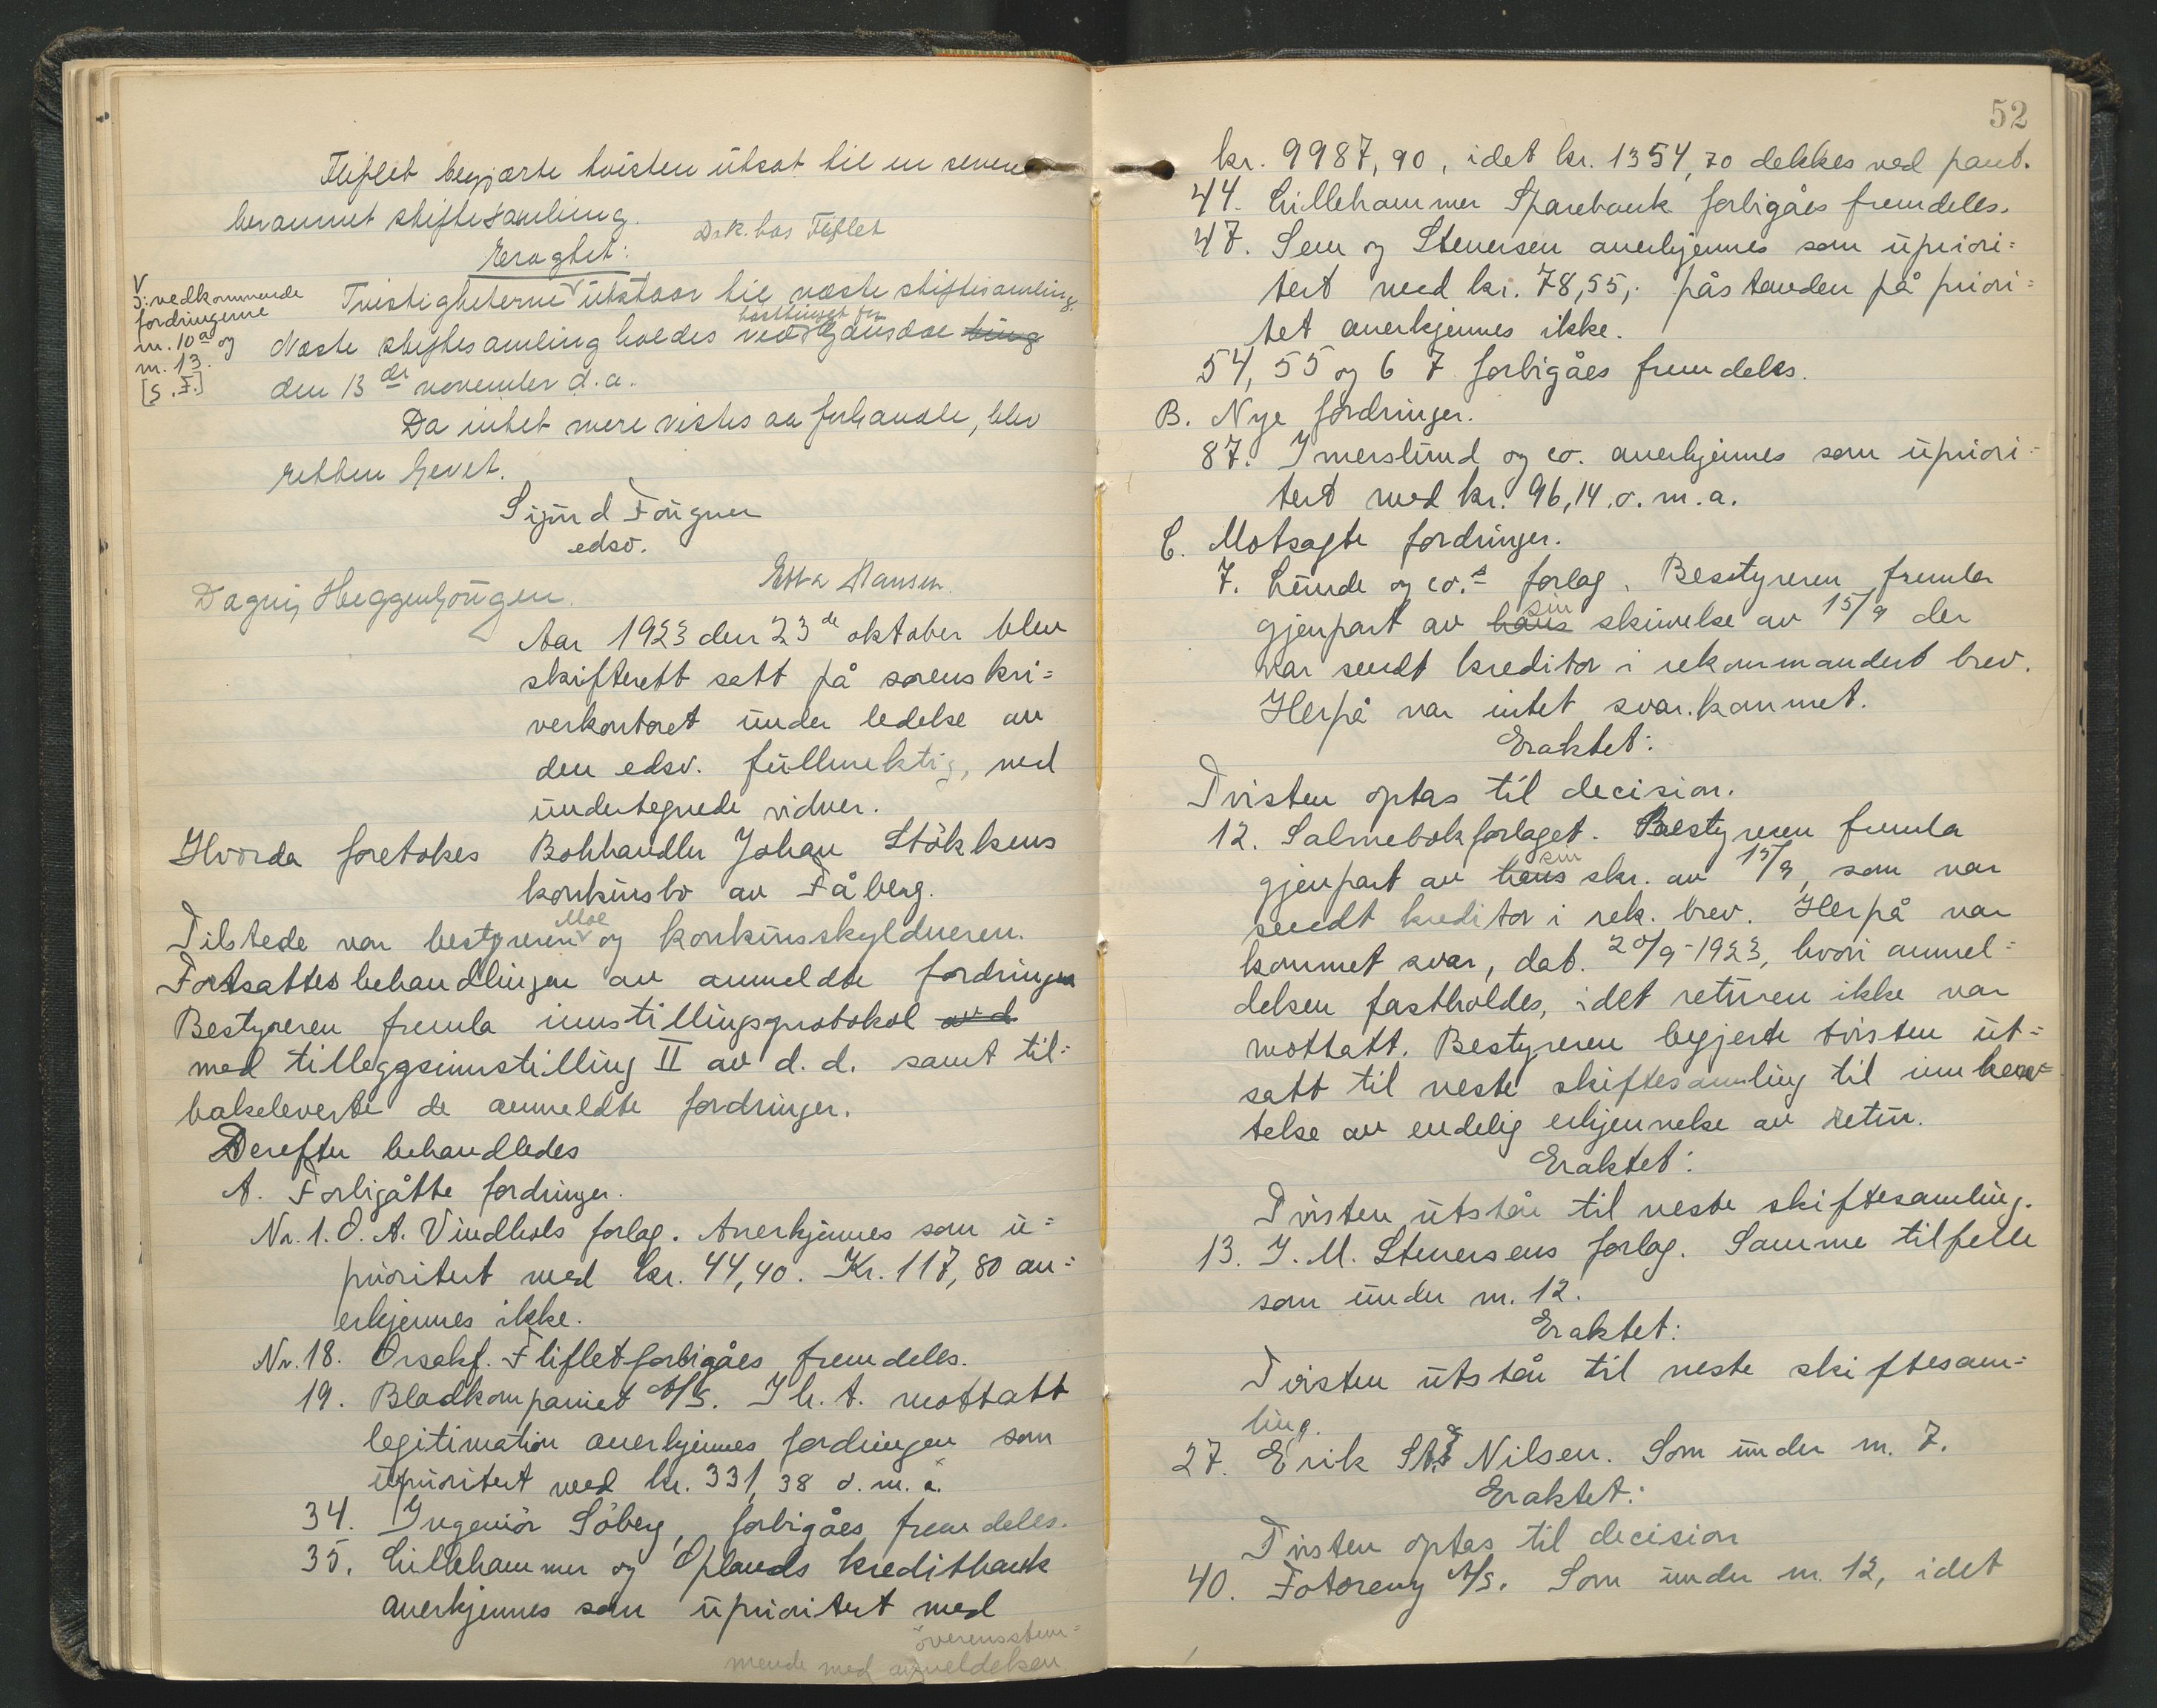 Fliflet begjærte tvisten utsat til en senere
berammet skiftesamling.
D.k. hos Fliflet
Eragtet:
Tvistighterne v utstaar til næste skiftesamling.
v
ɔ: vedkommende
fordringerne
nr. 10a og
nr. 13.
[S.F.]
Næste skiftesamling holdes ved Gausdal ting
den 13de november d.a.
Da intet mere vistes aa forhandle, blev
retten hevet.
Sigurd Fougner
edsv.
Dagny Heggenhougen.
Hansen.
Aar 1923 den 23de oktober blev
skifterett satt på sorenskri=
verkontoret under ledelse av
den edsv. fullmektig, med
undertegnede vidner.
Hvorda foretokes Bokhandler Johan Stökkens
konkursbo av Fåberg.
Tilstede var bestyreren v Moe og konkursskyldneren.
Fortsattes behandlingen av anmeldte fordringer
Bestyreren fremla innstillingsprotokol avd
med tilleggsinnstilling II av d.d. samt til=
bakeleverte de anmeldte fordringer.
Derefter behandledes
A. Forbigåtte fordringer.
Nr. 1. O. A. Vindhols forlag. Anerkjennes som u=
prioritert med kr. 44,40. Kr. 117,80 an=
erkjennes ikke.
Nr. 18. Orsakf. Fliflet forbigåes fremdeles.
19. Bladkompaniet A/S. I h. t. mottatt
legitimation anerkjennes fordringen som
uprioritert med kr. 331,38 o.m.a.
34. Ingeniör Söberg, forbigåes fremdeles.
35. Lillehammer og Oplands kreditbank
anerkjennes som uprioritert med
överensstem=
mende med anmeldelsen.
52
kr. 9987,90, idet kr. 1354,70 dekkes ved pant.
44. Lillehammer Sparebank forbigåes fremdeles.
47. Sem og Stenersen anerkjennes som upriori=
tert med kr. 78,55, påstanden på priori=
tet anerkjennes ikke.
54, 55 og 67 forbigåes fremdeles.
B. Nye fordringer.
87. Imerslund og co. anerkjennes som upriori=
tert med kr. 96,14 o.m.a.
C. Motsagte fordringer.
7. Lunde og co.s forlag. Bestyreren fremla
gjenpart av hans sin skrivelse av 15/9 der
var sendt kreditor i rekommandert brev.
Herpå var intet svar kommet.
Eraktet:
Tvisten optas til decision.
12. Salmebokforlaget. Bestyreren fremla
gjenpart av hans sin skr. av 15/9, som var
sendt kreditor i rek. brev. Herpå var
kommet svar, dat. 20/9-1923, hvori anmel=
delsen fastholdes, idet returen ikke var
mottatt. Bestyreren begjerte tvisten ut=
satt til neste skiftesamling til innhen=
telse av endelig erkjennelse av retur.
Eraktet:
Tvisten utstår til neste skiftesamling.
13. J. M. Stenersens forlag. Samme tilfelle
som under nr. 12.
Eraktet:
Tvisten utstår til neste skiftesam=
ling.
27. Erik St. Nilsen. Som under nr. 7.
Eraktet:
Tvisten optas til decision
40. Fotoreny A/S. Som under nr. 12, idet